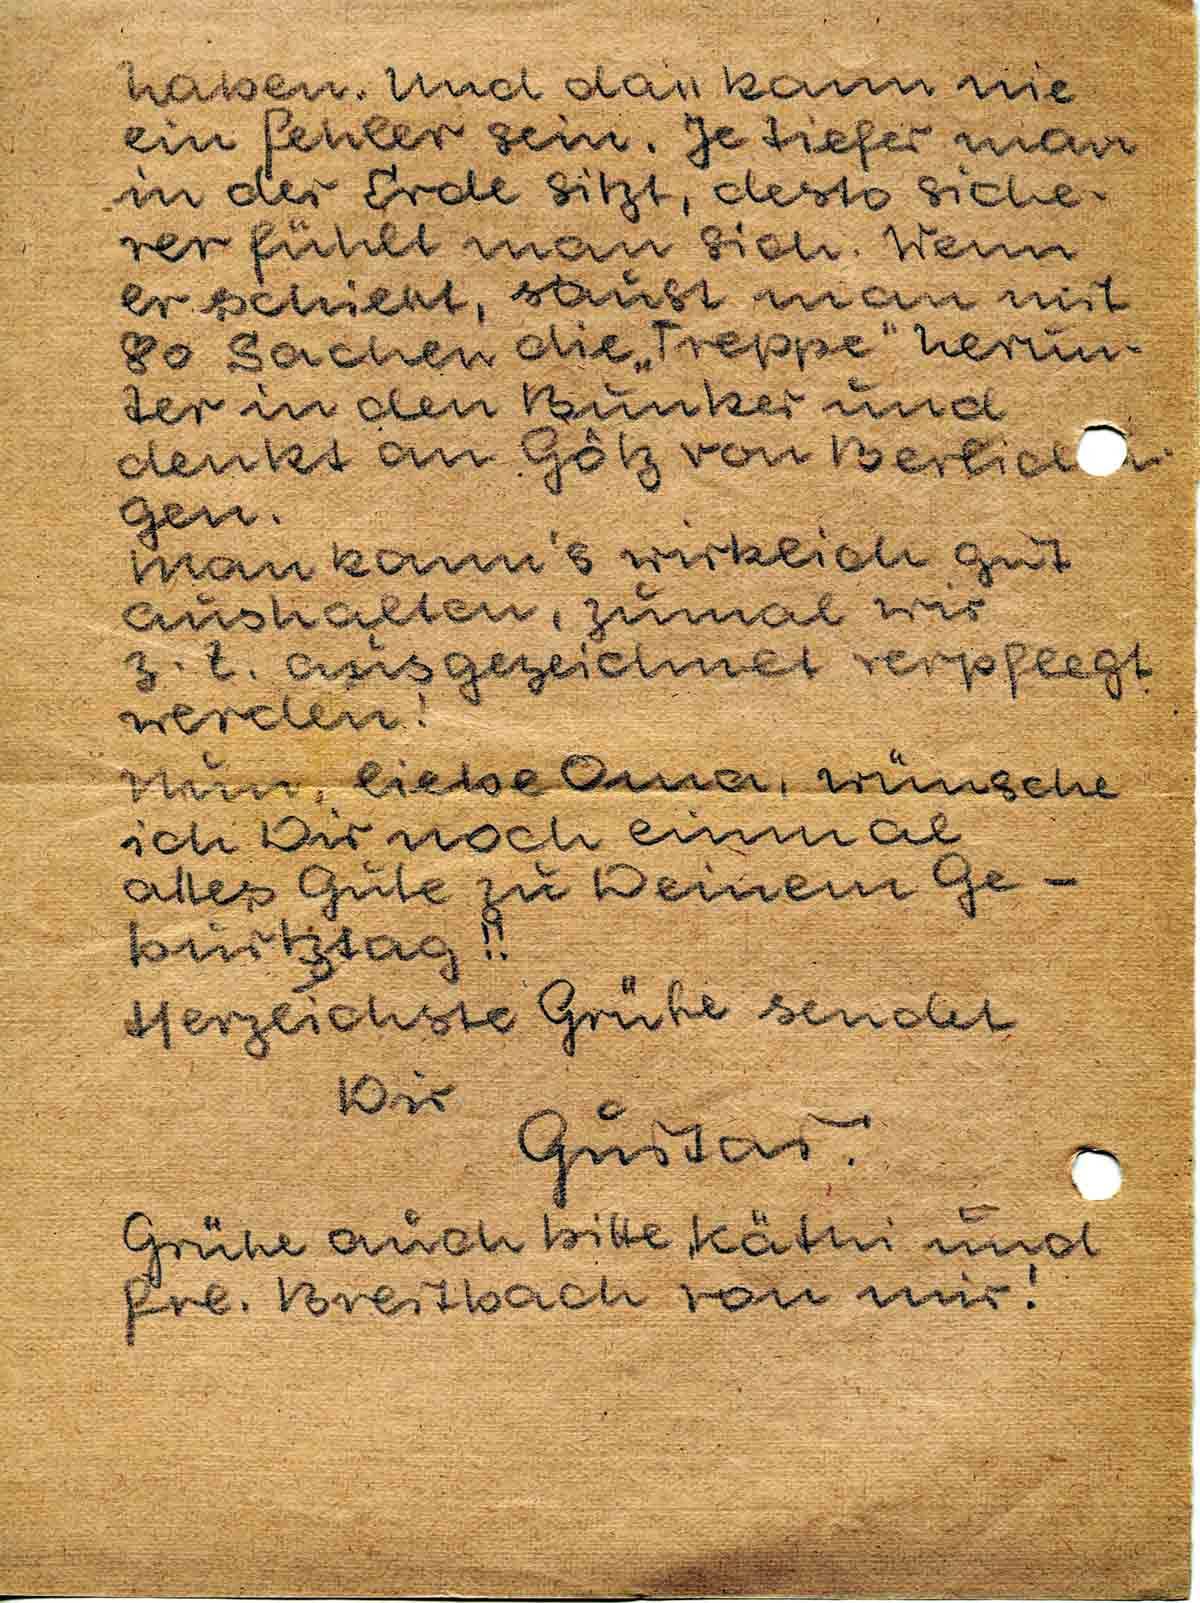 haben. Und das kann nie
ein Fehler sein. Je tiefer man
in der Erde sitzt, desto siche-
rer fühlt man sich. Wenn
er schießt, saust man mit
80 Sachen die „Treppe" herun-
ter in den Bunker und
denkt an Götz von Berlichin-
gen.
Man kann's wirklich gut
aushalten, zumal wir
z. Z. ausgezeichnet verpflegt
werden!
Nun, liebe Oma, wünsche
ich Dir noch einmal
alles Gute zu Deinem Ge-
burtstag!!
Herzlichste Grüße sendet
Dir
Gustav.
Grüße auch bitte Käthi und
Frl. Breitbach von mir!